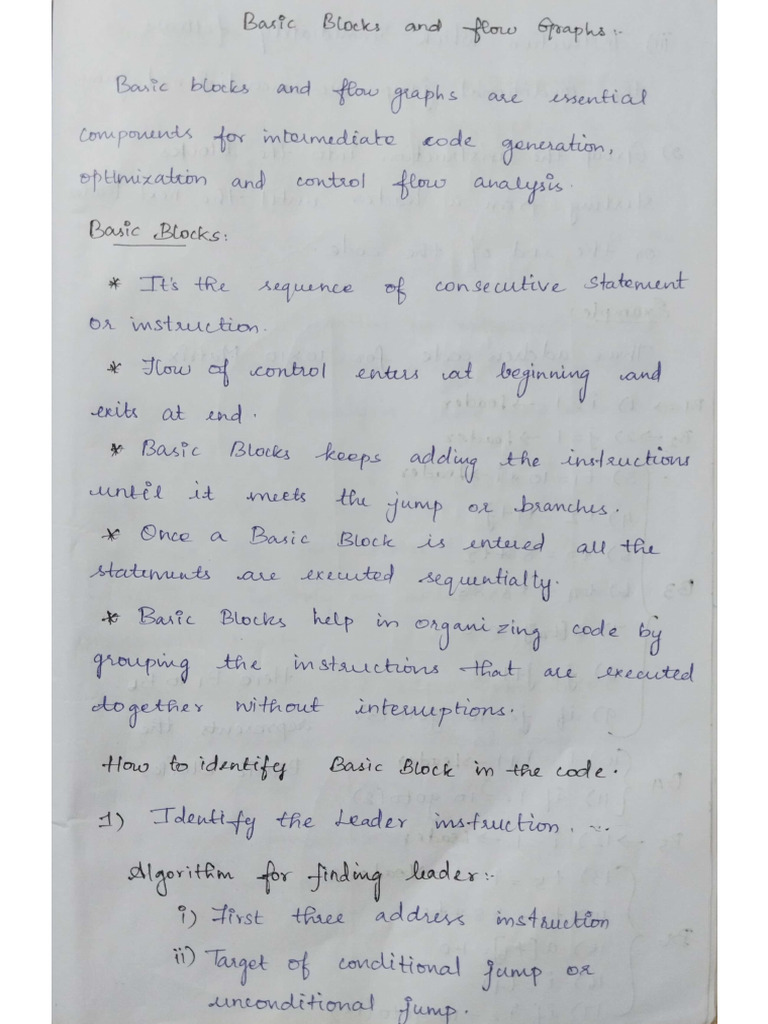 Basic Blocks and flow Graphs:-
Basic blocks and flow graphs are essential
components for intermediate code generation,
optimization and control flow analysis.
Basic Blocks:
* It's the sequence of consecutive statement
or instruction.
* Flow of control enters at beginning and
exits at end.
* Basic Blocks keeps adding the instructions
until it meets the jump or branches.
* Once a Basic Block is entered all the
statements are executed sequentially.
* Basic Blocks help in organizing code by
grouping the instructions that are executed
together without interruptions.
How to identify Basic Block in the code.
1) Identify the Leader instruction.
Algorithm for finding leader:-
i) First three address instruction
ii) Target of conditional jump or
unconditional jump.